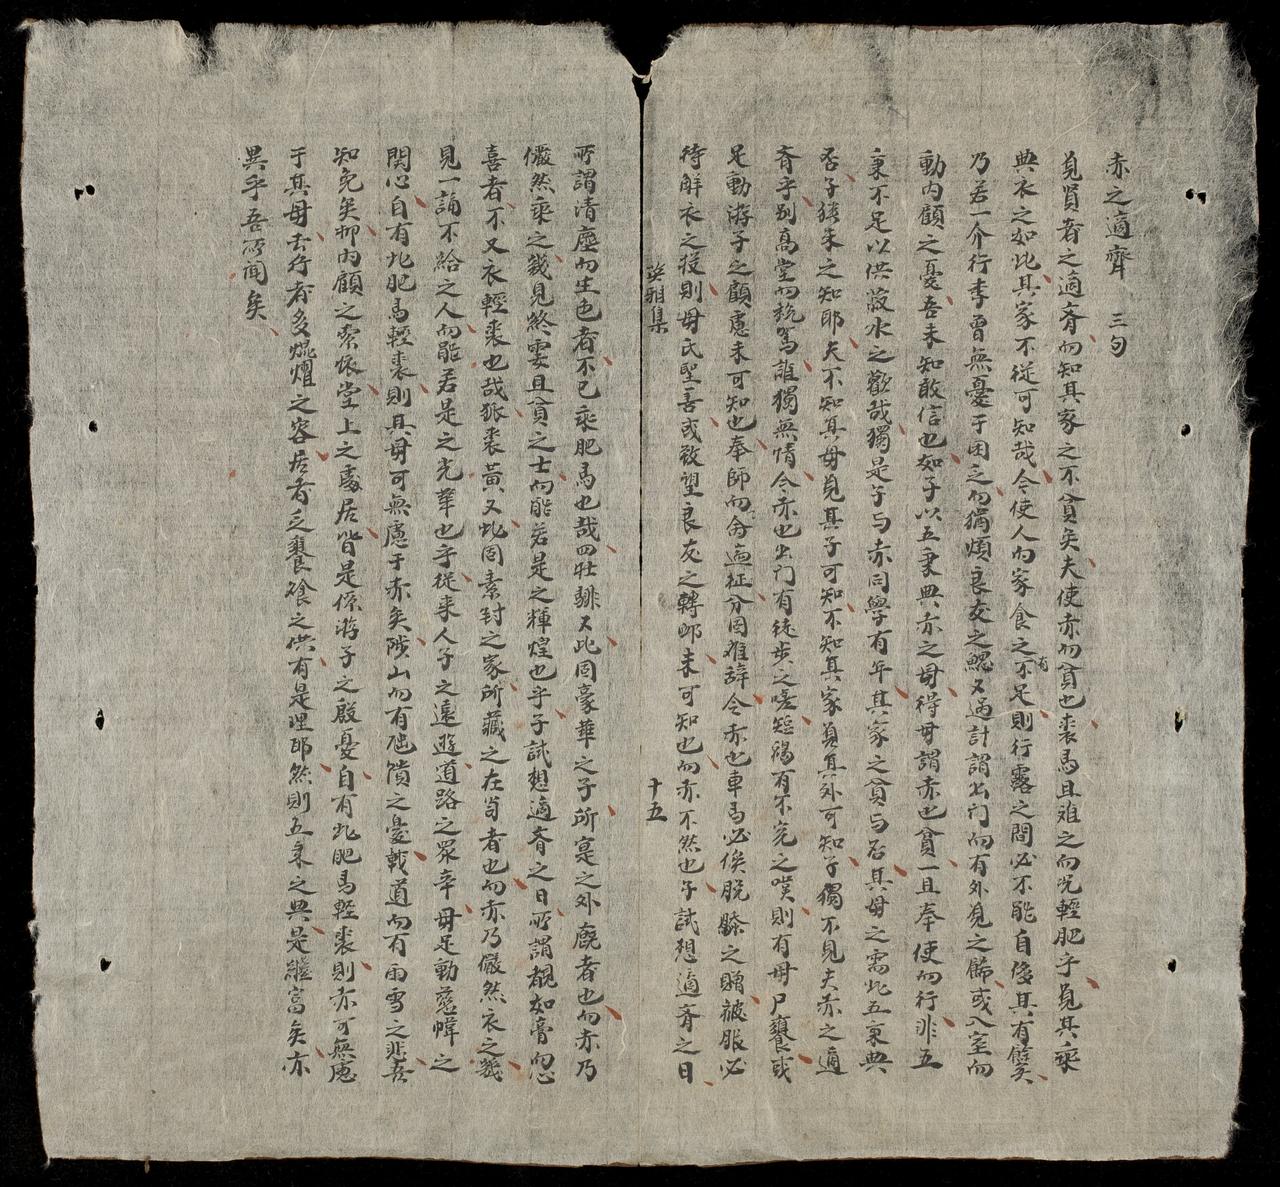 赤之適齊　三句
覓賢者之適斉而知其家之不貧矣夫使赤而貧也裘馬且难之而况輕肥乎覓其乘
與衣之如此其家不從可知哉今使人而家食之有不足則行露之間必不能自俻其有
乃若一介行李曾無憂于困乏而獨煩良友之又適計謂出门而有外覓之或入室而
動內顧之憂吾未知敢信也如子以五秉與赤之母得毋謂赤也貧一旦奉使而行非五
秉不足以供菽水之歡哉獨是子与赤同學有年其家之貧与否其母之需此五秉與
否子豬未之知耶夫不知其母覓其子可知不知其家覓其外可知子獨不見夫赤之適
斉乎別高堂而誰獨無情今赤也出门有徒步之嗟短褐有不完之嘆則有母尸饔或
足動游子之顧慮未可知也奉師而征分固难辞今赤也車馬必俟脫驂之贈被服必
待解衣之投則母氏聖善或致望良友之轉邺未可知也而赤不然也子試想適斉之日
雅集　十五
所謂清塵而生色者不已乘肥馬也哉四牡騑又此固豪華之子所寔之外廐者也而赤乃
儼然乘之幾見終窶且貧之士而能若是之輝煌也乎子試想適斉之日所謂觀如膏而心
喜者不又衣輕裘也哉狐裘黃又此固素封之家所藏之在笥者也而赤乃儼然衣之幾
見一誦不給之人而能若是之光華也乎従来人子之遠遊道路之眾辛毋足動慈幃之
関心自有此肥馬輕裘則其母可無慮于赤矣陟山而有饋之憂載道而有雨雪之悲吾
知免矣抑內顧之索依堂上之處居皆是係游子之殷憂自有此肥馬輕裘則赤可無慮
于其母去行者多焜燿之容居者乏饔飱之供有是理耶然則五秉之與是繼富矣亦
異乎吾所闻矣